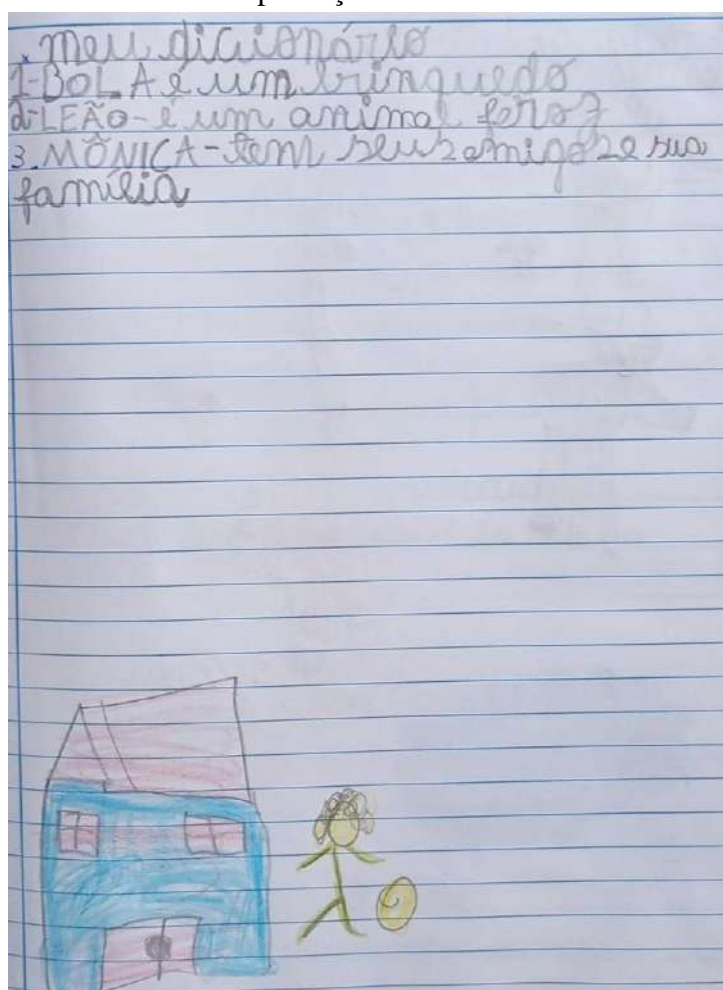 . meu dicionário
1-BOLA é um brinquedo
2-LEÃO-é um animal feroz
3.MÔNICA-tem seus amigos e sua
família